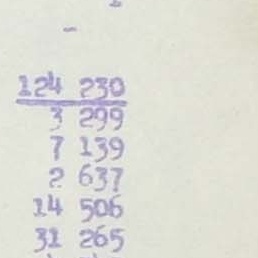 -
124 230
3 299
7 139
2 637
14 506
31 265